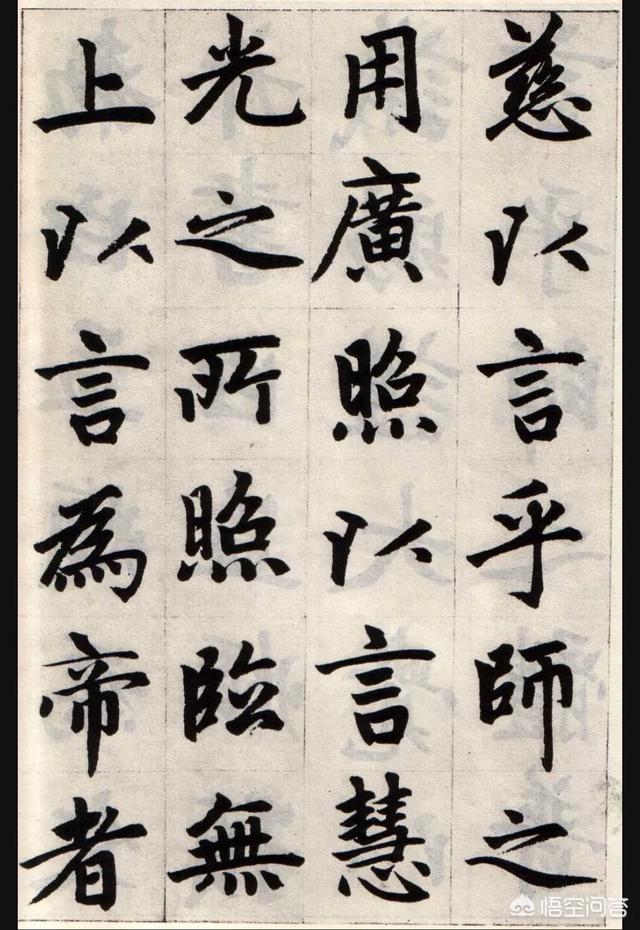 慈以言乎師之
用廣照以言慧
光之所照臨無
上以言為帝者
悟空问答